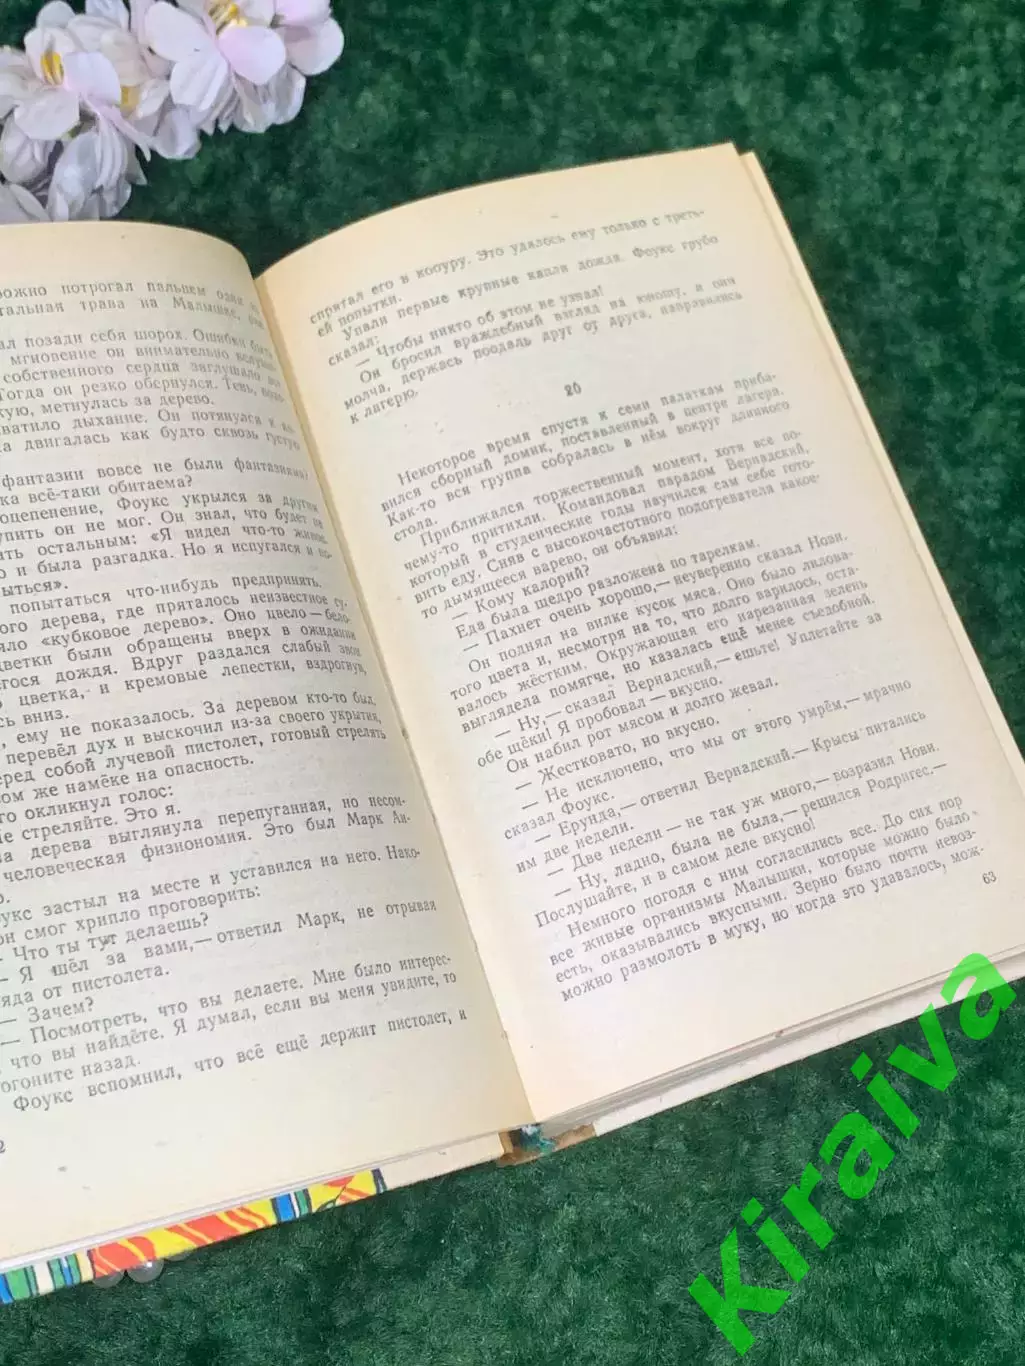 рожно потрогал пальцем
тальная трава на Малышке, они
ал позади себя шорох. Ошибки быть
мгновение он внимательно
собственного сердца заглушало все
Тогда он резко обернулся. Тень,
кую, метнулась за дерево.
ватило дыхание. Он потянулся к
а двигалась как будто сквозь густую
фантазии вовсе не были фантазиями?
ка всё-таки обитаема?
оцепенение, Фоукс укрылся за другим
упить он не мог. Он знал, что будет не
ать остальным: «Я видел что-то живое,
о и была разгадка. Но я испугался и по-
ыться».
попытаться что-нибудь предпринять.
ого дерева, где пряталось неизвестное су-
яло «кубковое дерево». Оно цвело — бело-
цветки были обращены вверх в ожидании
егося дождя. Вдруг раздался слабый звон
о цветка, и кремовые лепестки, вздрогнув,
сь вниз.
, ему не показалось. За деревом кто-то был.
перевёл дух и выскочил из-за своего укрытия,
еред собой лучевой пистолет, готовый стрелять
ом же намёке на опасность.
го окликнул голос:
Не стреляйте. Это я.
за дерева выглянула перепуганная, но несом-
человеческая физиономия. Это был Марк Ан-
о.
оукс застыл на месте и уставился на него. Нако-
он смог хрипло проговорить:
— Что ты тут делаешь?
— Я шёл за вами,— ответил Марк, не отрывая
ляда от пистолета.
— Зачем?
— Посмотреть, что вы делаете. Мне было интерес-
, что вы найдёте. Я думал, если вы меня увидите, то
огоните назад.
Фоукс вспомнил, что всё ещё держит пистолет, и
2
спрятал его в кобуру. Это удалось ему только с треть-
ей попытки.
Упали первые крупные капли дождя. Фоукс грубо
сказал:
— Чтобы никто об этом не узнал!
Он бросил враждебный взгляд на юношу, и они
молча, держась поодаль друг от друга, направились
к лагерю.
20
Некоторое время спустя к семи палаткам приба-
вился сборный домик, поставленный в центре лагеря.
Как-то вся группа собралась в нём вокруг длинного
стола.
Приближался торжественный момент, хотя все по-
чему-то притихли. Командовал парадом Вернадский,
который в студенческие годы научился сам себе гото-
вить еду. Сняв с высокочастотного подогревателя какое-
то дымящееся варево, он объявил:
— Кому калорий?
Еда была щедро разложена по тарелкам.
— Пахнет очень хорошо,— неуверенно сказал Нови.
Он поднял на вилке кусок мяса. Оно было лилова-
того цвета и, несмотря на то, что долго варилось, оста-
валось жёстким. Окружающая его нарезанная зелень
выглядела помягче, но казалась ещё менее съедобной.
— Ну,— сказал Вернадский,— ешьте! Уплетайте за
обе щёки! Я пробовал — вкусно.
Он набил рот мясом и долго жевал.
— Жестковато, но вкусно.
— Не исключено, что мы от этого умрём,— мрачно
сказал Фоукс.
— Ерунда,— ответил Вернадский.— Крысы питались
им две недели.
— Две недели — не так уж много,— возразил Нови.
— Ну, ладно, была не была,— решился Родригес.—
Послушайте, и в самом деле вкусно!
Немного погодя с ним согласились все. До сих пор
все живые организмы Малышки, которые можно было
есть, оказывались вкусными. Зерно было почти невоз-
можно размолоть в муку, но когда это удавалось, мож-
63
Kiraiva